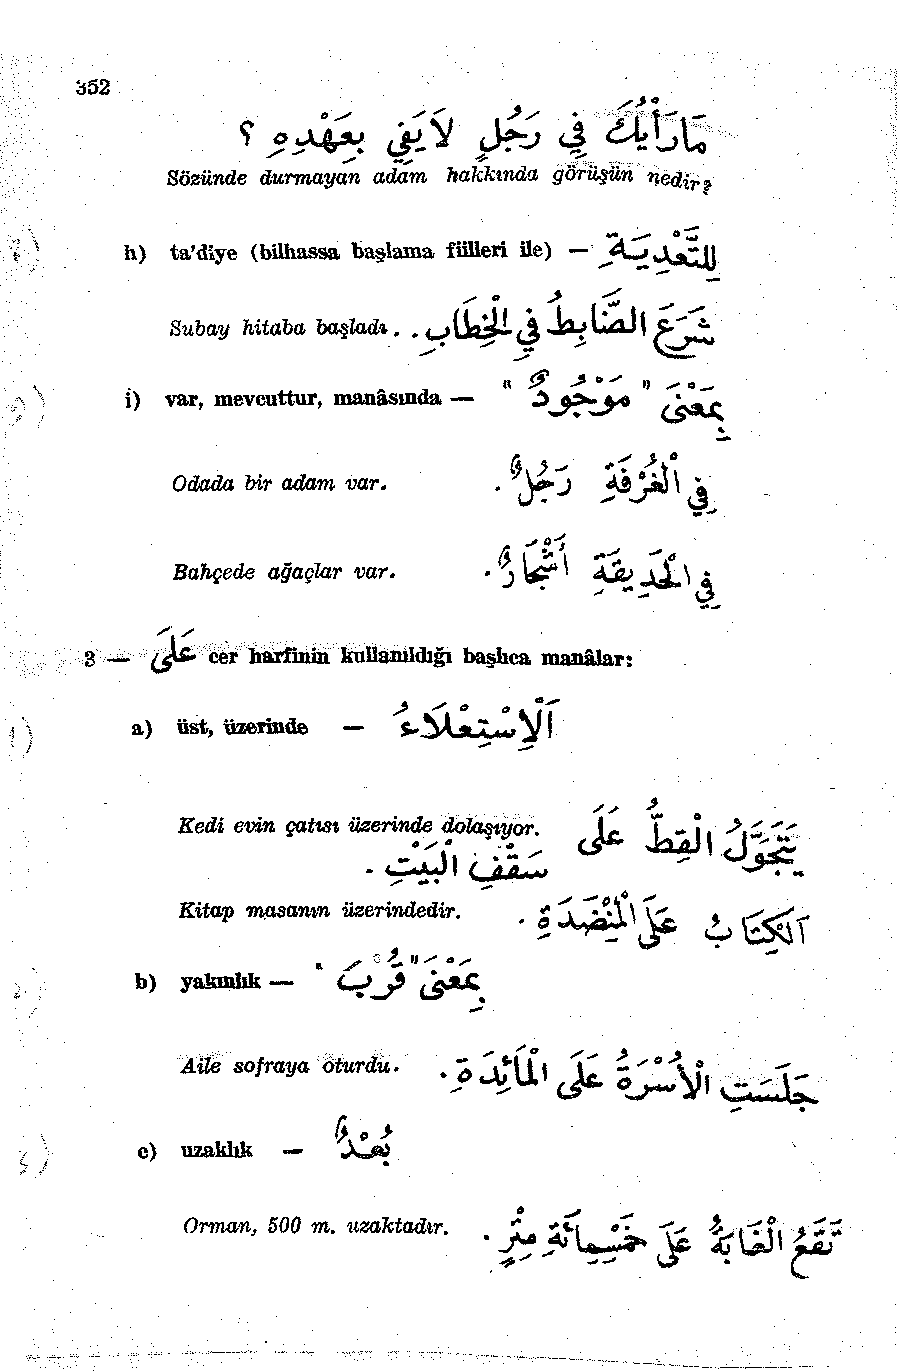 352
مَارَأْيُكَ فِي رَجُلٍ لَا يَفِي بِعَهْدِهِ ؟
Sözünde durmayan adam hakkında görüşün nedir?
h) ta'diye (bilhassa başlama fiilleri ile) — لِلتَّعْدِيَةِ
Subay hitaba başladı. . شَرَعَ الضَّابِطُ فِي الْخِطَابِ
i) var, mevcuttur, manâsında — بِمَعْنَى " مَوْجُودٌ "
Odada bir adam var. فِي الْغُرْفَةِ رَجُلٌ .
Bahçede ağaçlar var. فِي الْحَدِيقَةِ أَشْجَارٌ .
3 — عَلَى cer harfinin kullanıldığı başlıca manâlar:
a) üst, üzerinde — اَلْاِسْتِعْلَاءُ
Kedi evin çatısı üzerinde dolaşıyor. يَتَجَوَّلُ الْقِطُّ عَلَى
سَقْفِ الْبَيْتِ .
Kitap masanın üzerindedir. اَلْكِتَابُ عَلَى الْمِنْضَدَةِ .
b) yakınlık — بِمَعْنَى " قُرْبَ "
Aile sofraya oturdu. جَلَسَتِ الْأُسْرَةُ عَلَى الْمَائِدَةِ .
c) uzaklık — بُعْدٌ
Orman, 500 m. uzaktadır. تَقَعُ الْغَابَةُ عَلَى خَمْسِمِائَةِ مِتْرٍ .